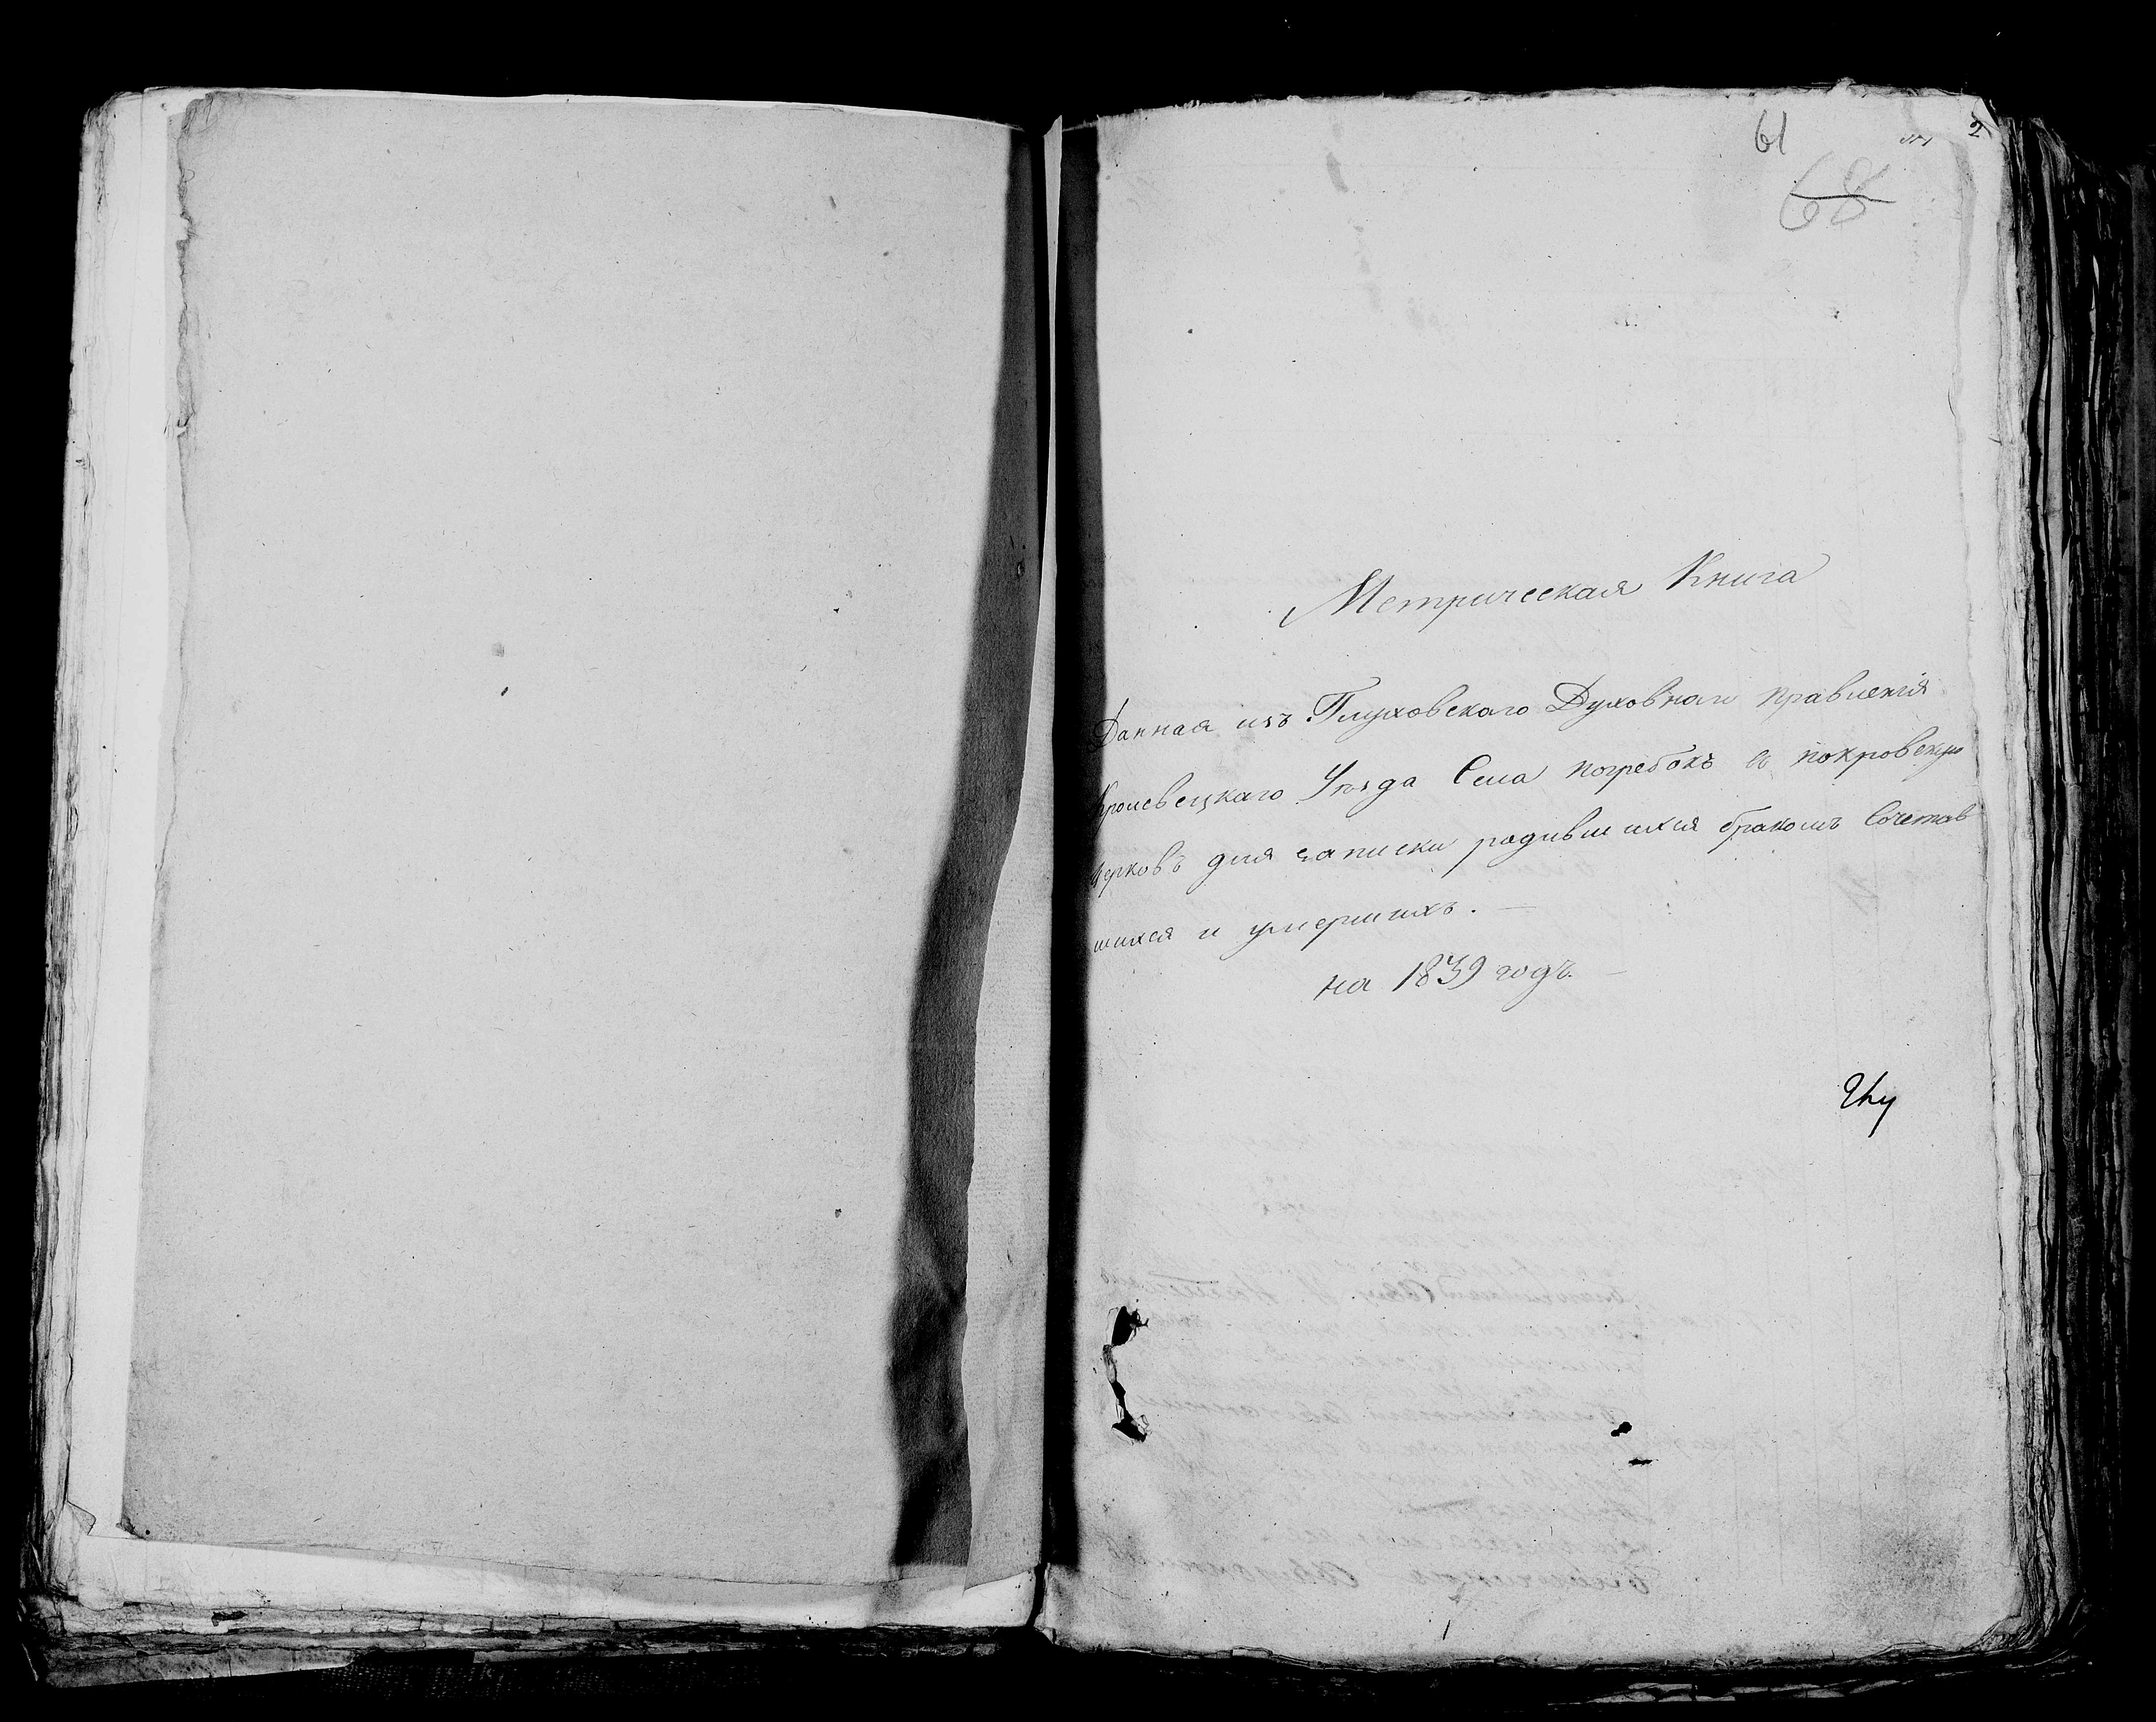 61
2
68
Метрическая Книга
Данная изъ Глуховскаго Духовнаго правленія
Кролевецкаго Уѣзда Села погребокъ въ покровскую
Церковъ для записки родившихся бракомъ Сочетав
шихся и умершихъ. —
на 1839 годъ. —